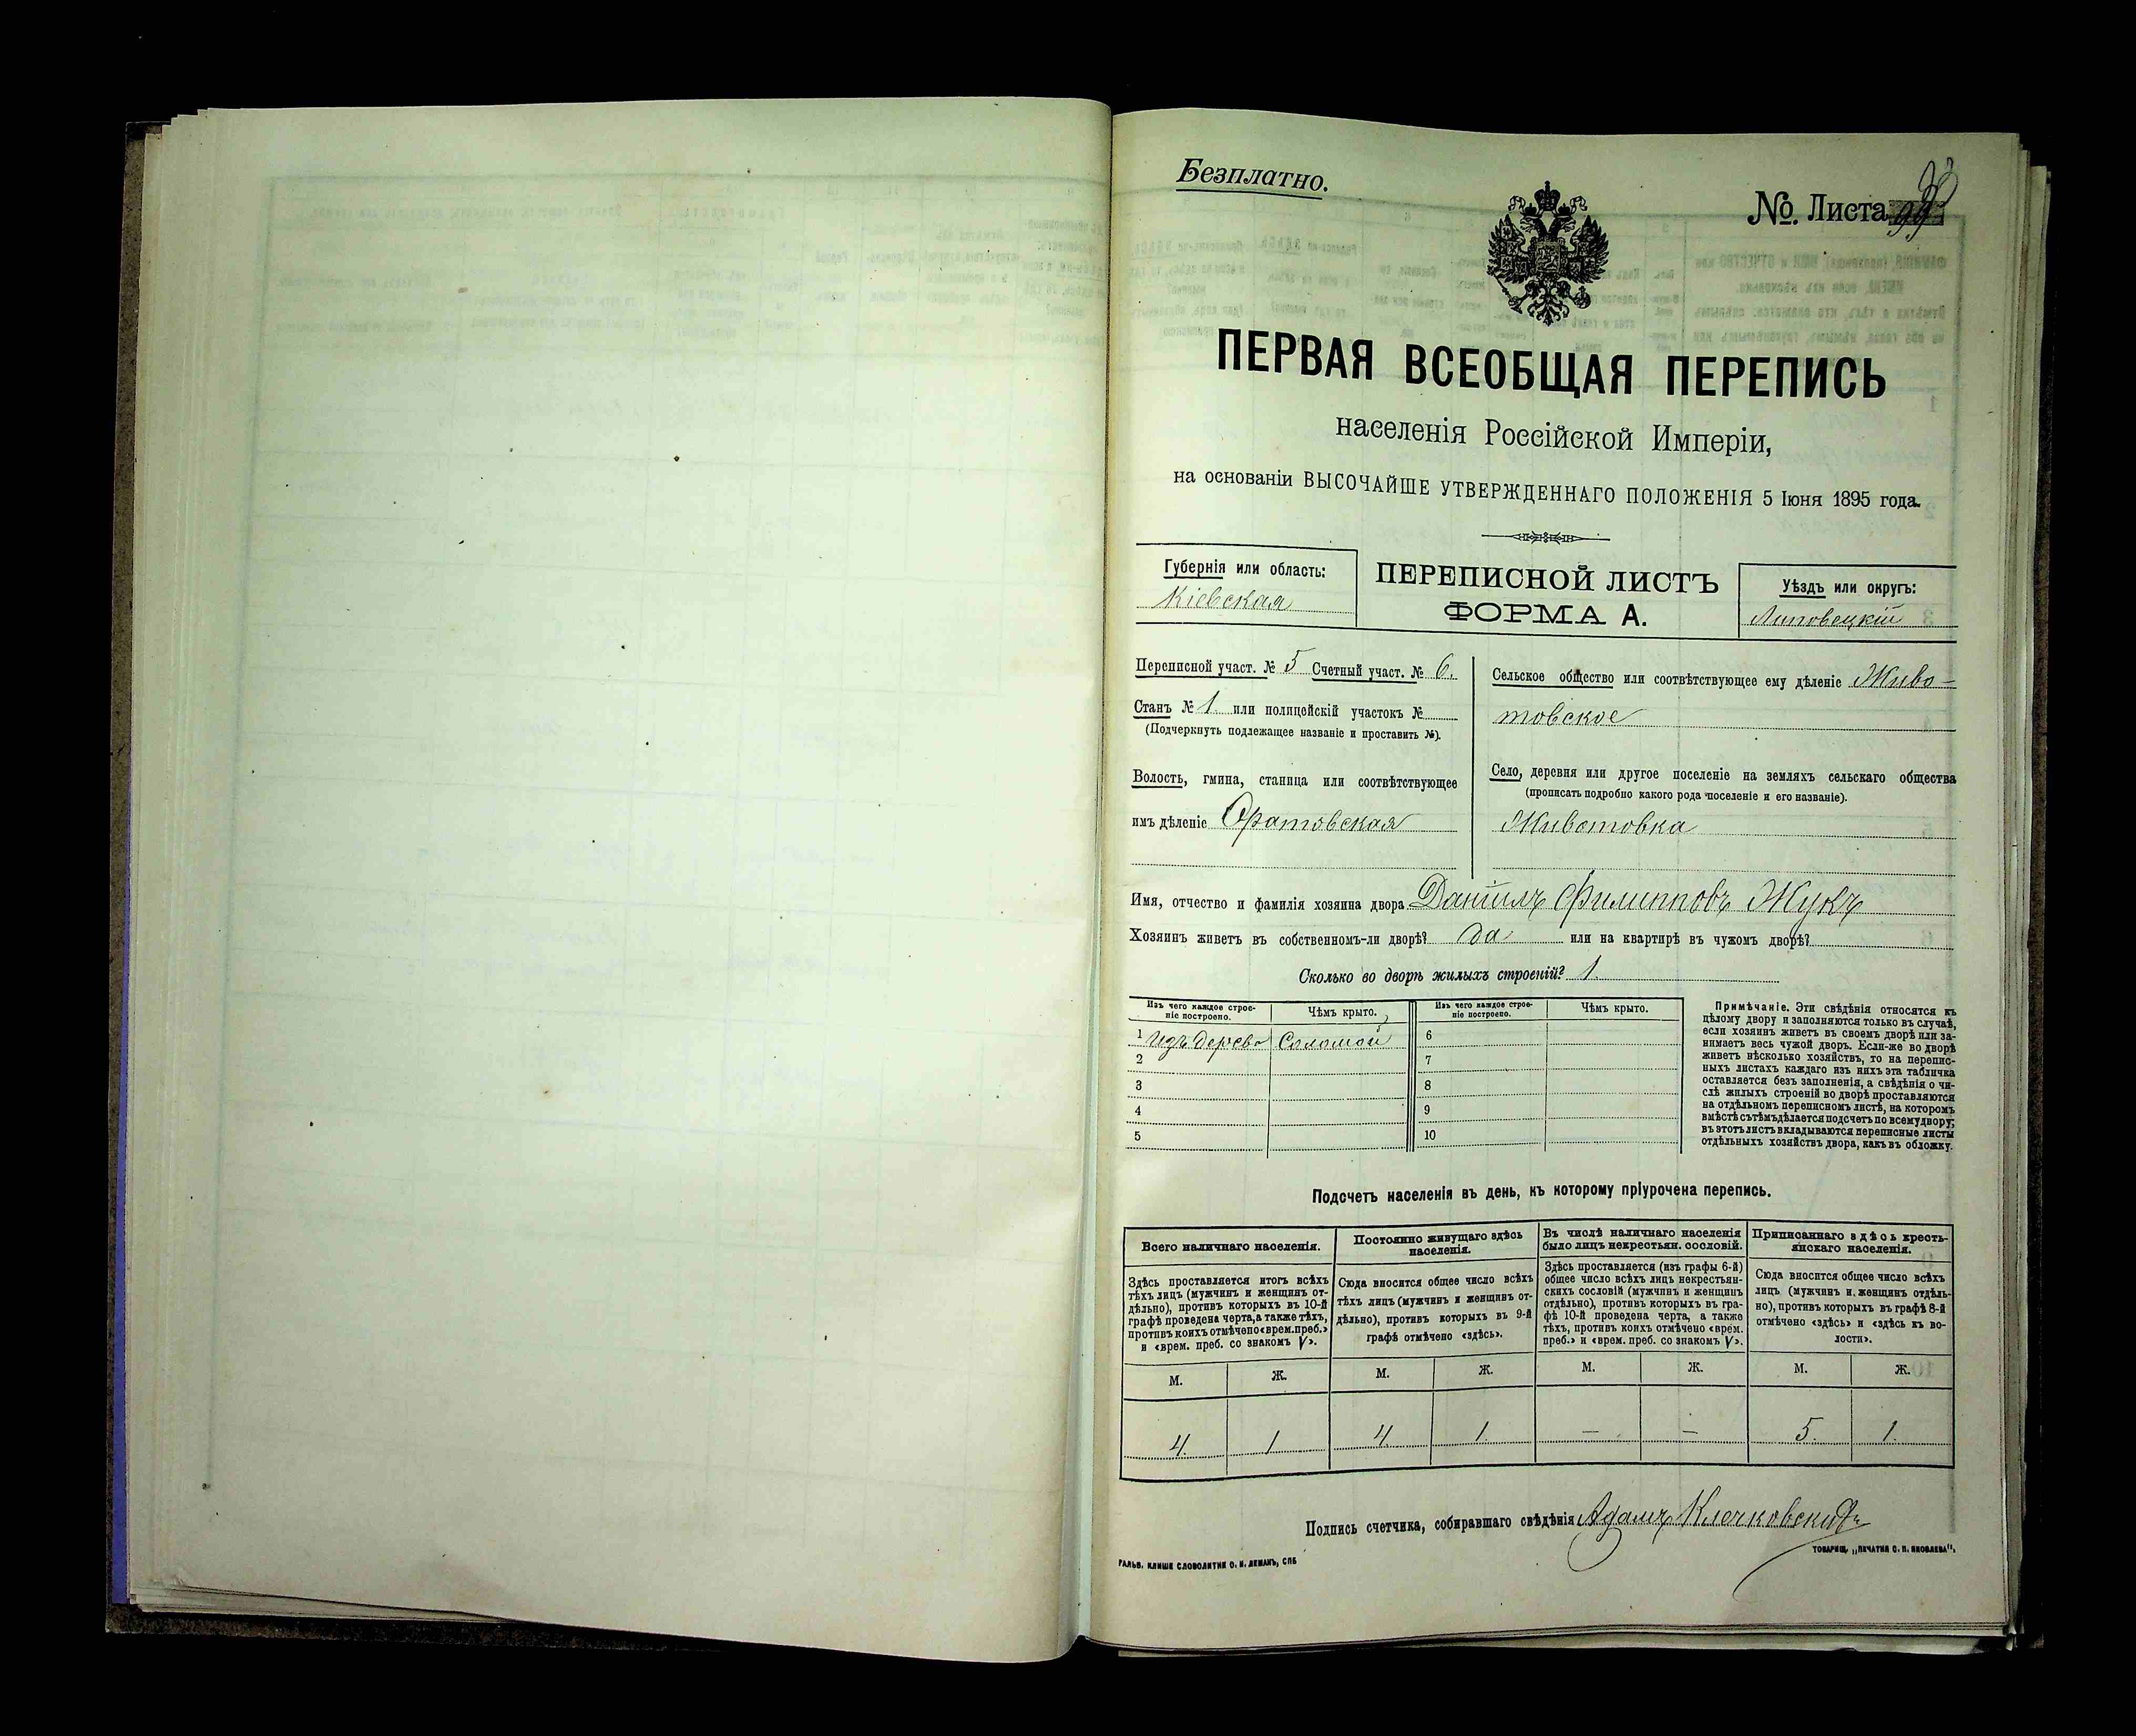 Безплатно.
№ Листа
ПЕРВАЯ ВСЕОБЩАЯ ПЕРЕПИСЬ
населенія Россійской Имперіи,
на основаніи ВЫСОЧАЙШЕ УТВЕРЖДЕННАГО ПОЛОЖЕНІЯ 5 Іюня 1895 года.
Губернія или область:
Кіевская
ПЕРЕПИСНОЙ ЛИСТЪ
ФОРМА А.
Уѣздъ или округъ:
Липовецкій
Переписной участ. № 5 Счетный участ. № 6.
Станъ № 1 или полицейскій участокъ №
(Подчеркнуть подлежащее названіе и проставить №).
Волость, гмина, станица или соотвѣтствующее
имъ дѣленіе Оратовская
Сельское общество или соотвѣтствующее ему дѣленіе Живо-
товское
Село, деревня или другое поселеніе на земляхъ сельскаго общества
(прописать подробно какого рода поселеніе и его названіе).
Животовка
Имя, отчество и фамилія хозяина двора Даніилъ Филипповъ Жукъ
Хозяинъ живетъ въ собственномъ-ли дворѣ? да или на квартирѣ въ чужомъ дворѣ?
Сколько во дворѣ жилыхъ строеній? 1.
Изъ чего каждое строе-
ніе построено.
Чѣмъ крыто.
Изъ чего каждое строе-
ніе построено.
Чѣмъ крыто.
1 Изъ дерева Соломой 6
2 7
3 8
4 9
5 10
Примѣчаніе. Эти свѣдѣнія относятся къ
цѣлому двору и заполняются только въ случаѣ,
если хозяинъ живетъ въ своемъ дворѣ или за-
нимаетъ весь чужой дворъ. Если-же во дворѣ
живетъ нѣсколько хозяйствъ, то на перепис-
ныхъ листахъ каждаго изъ нихъ эта табличка
оставляется безъ заполненія, а свѣдѣнія о чи-
слѣ жилыхъ строеній во дворѣ проставляются
на отдѣльномъ переписномъ листѣ, на которомъ
вмѣстѣ съ тѣмъ дѣлается подсчетъ по всему двору;
въ этотъ листъ вкладываются переписные листы
отдѣльныхъ хозяйствъ двора, какъ въ обложку.
Подсчетъ населенія въ день, къ которому пріурочена перепись.
Всего наличнаго населенія.
Здѣсь проставляется итогъ всѣхъ
тѣхъ лицъ (мужчинъ и женщинъ от-
дѣльно), противъ которыхъ въ 10-й
графѣ проведена черта, а также тѣхъ,
противъ коихъ отмѣчено «врем. преб.»
и «врем. преб. со знакомъ V».
Постоянно живущаго здѣсь
населенія.
Сюда вносится общее число всѣхъ
тѣхъ лицъ (мужчинъ и женщинъ от-
дѣльно), противъ которыхъ въ 9-й
графѣ отмѣчено «здѣсь».
Въ числѣ наличнаго населенія
было лицъ некрестьян. сословій.
Здѣсь проставляется (изъ графы 6-й)
общее число всѣхъ лицъ некрестьян-
скихъ сословій (мужчинъ и женщинъ
отдѣльно), противъ которыхъ въ гра-
фѣ 10-й проведена черта, а также
тѣхъ, противъ коихъ отмѣчено «врем.
преб.» и «врем. преб. со знакомъ V».
Приписаннаго здѣсь кресть-
янскаго населенія.
Сюда вносится общее число всѣхъ
лицъ (мужчинъ и женщинъ отдѣль-
но), противъ которыхъ въ графѣ 8-й
отмѣчено «здѣсь» и «здѣсь къ во-
лости».
М. Ж. М. Ж. М. Ж. М. Ж.
4. 1 4 1. — — 5. 1.
Подпись счетчика, собиравшаго свѣдѣнія Адамъ Клечковскій
ГАЛЬВ. КЛИШЕ СЛОВОЛИТНИ О. И. ЛЕМАНЪ, СПБ
ТОВАРИЩ. „ПЕЧАТНЯ С. П. ЯКОВЛЕВА“,